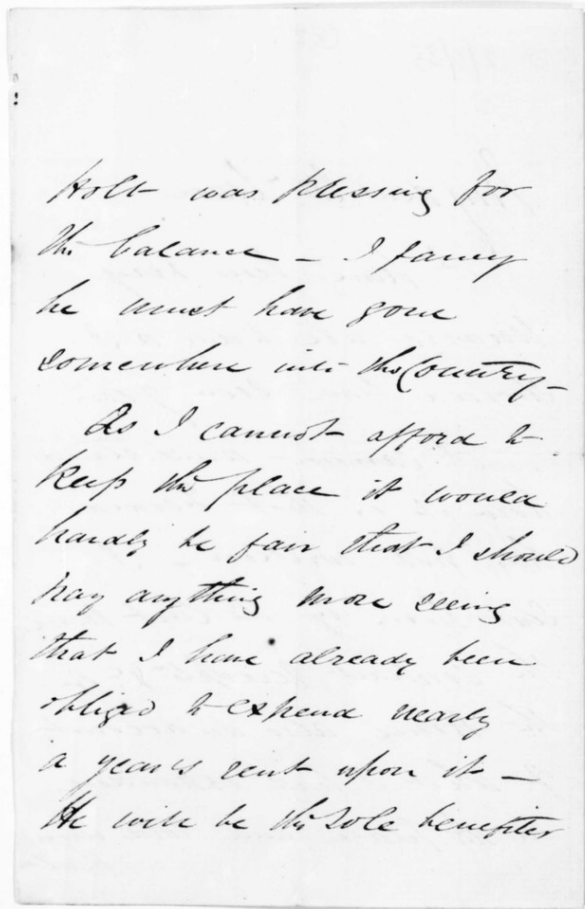 Holt was pressing for
the balance – I fancy
he must have gone
somewhere into the Country –
As I cannot afford to
keep the place it would
hardly be fair that I should
pay anything more seeing
that I have already been
obliged to expend nearly
a year's rent upon it –
He will be the sole benefiter